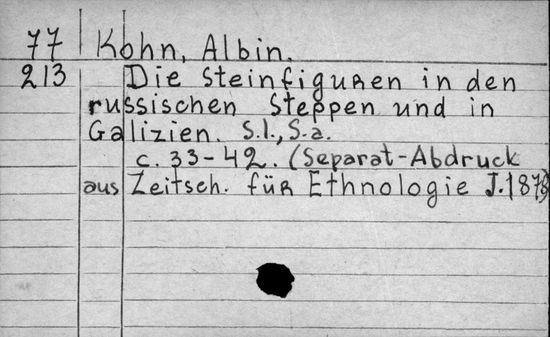 77 Kohn, Albin.
213 Die Steinfiguren in den
russischen Steppen und in
Galizien. S.l., S.a.
c. 33-42. (Separat-Abdruck
aus Zeitsch. für Ethnologie J. 1878)